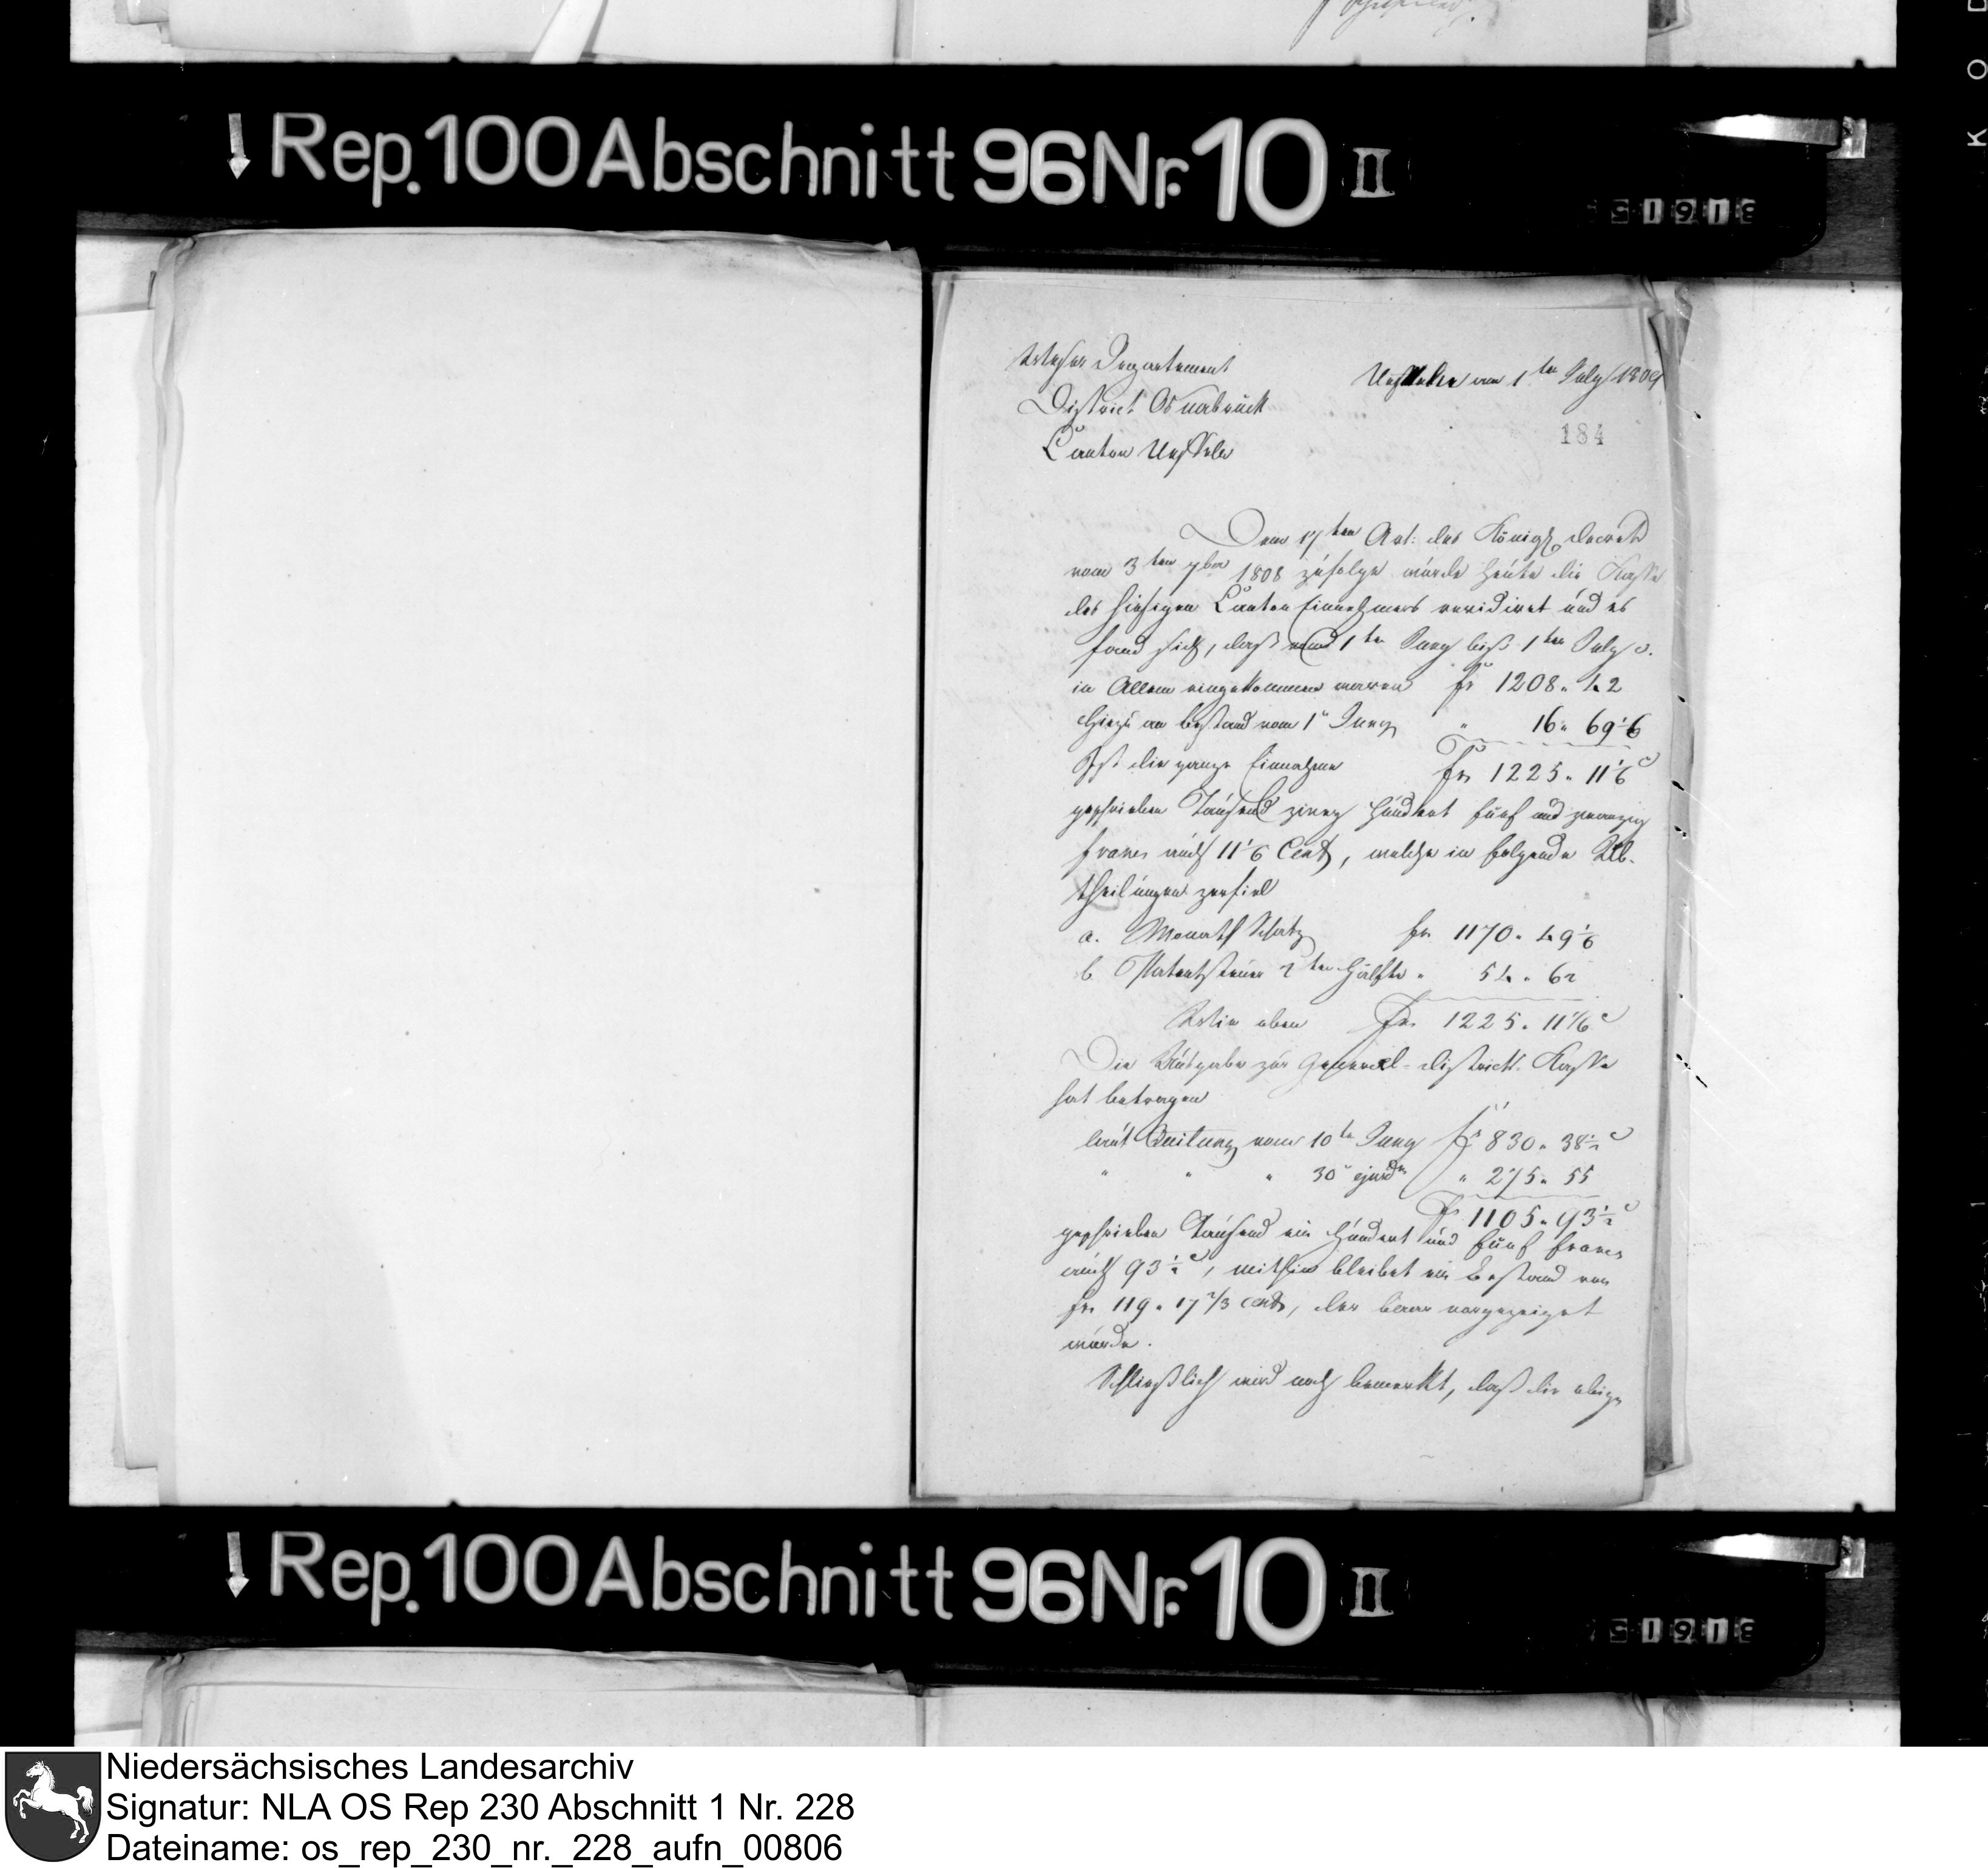 K O D
Rep. 100 Abschnitt 96 Nr. 10 II
51918
Weser Departement
District Osnabrück
Canton Ueffeln
Ueffeln am 1ten July 1809
184
Dem 17ten Art: des Königl. decrets
vom 3ten 7ber 1808 zufolge wurde heute die Kasse
des hiesigen Canton Einnehmers revidiret und es
fand sich, daß vom 1ten Juny biß 1ten July c.
in Allem eingekommen waren fr 1208. 42
Hiezu an bestand vom 1t Juny " 16. 69 1/6
Ist die ganze Einnahme frs 1225. 11 1/6 c
geschrieben Tausend zwey hundert fünf und zwanzig
francs auch 11 1/6 Cent, welche in folgende Ab-
theilungen zerfiel
a. Monath Schatz frs 1170. 49 1/6
b Patentsteuer 2ten Hälfte " 54. 62
Wie oben frs 1225. 11 1/6 c
Die Ausgabe zur General-districts Kasse
hat betragen
laut Quitung vom 10t Juny fr 830. 38 1/2 c
" " " 30t ejusd " 275. 55
fr 1105. 93 1/2 c
geschrieben Tausend ein Hundert und fünf francs
auch 93 1/2 c, mithin bleibet ein Bestand von
frs 119. 17 2/3 cents, der baar vorgezeiget
wurde.
Schließlich wird noch bemerkt, daß die obige
Rep. 100 Abschnitt 96 Nr. 10 II
51918
Niedersächsisches Landesarchiv
Signatur: NLA OS Rep 230 Abschnitt 1 Nr. 228
Dateiname: os_rep_230_nr._228_aufn_00806